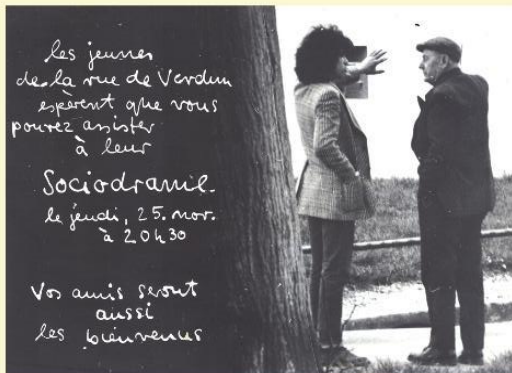 les jeunes
de la rue de Verdun
espèrent que vous
pouvez assister
à leur
Sociodrame.
le jeudi, 25. nov.
à 20h30
Vos amis seront
aussi
les bienvenus